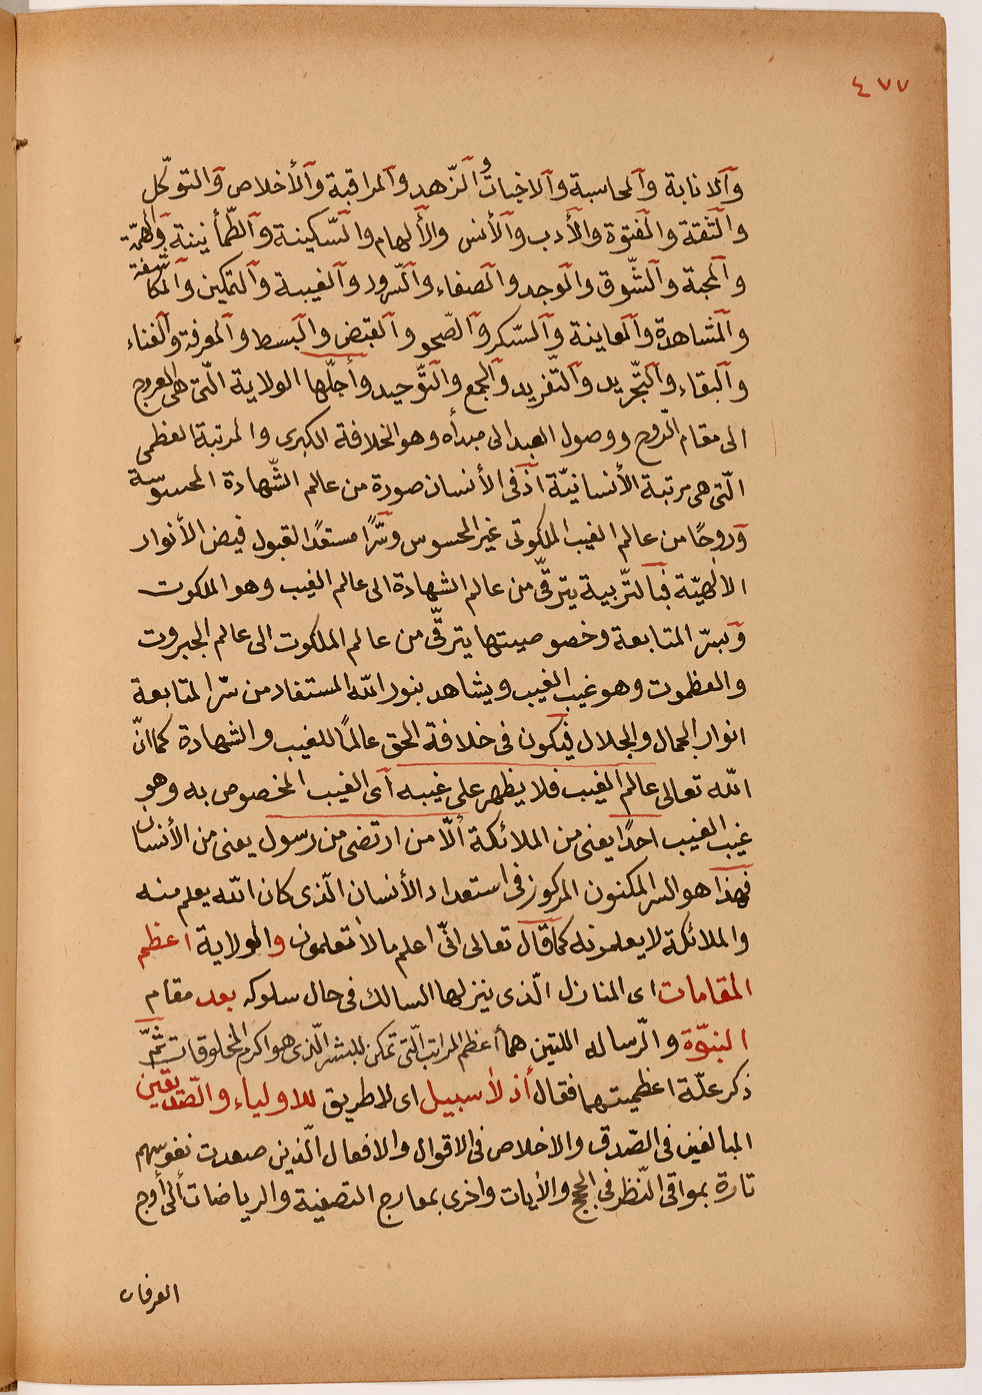 ٤٧٧
والانابة والمحاسبة والاخبات والزّهد والمراقبة والأخلاص والتوكّل
والثّقة والفتوة والأدب والأنس والألهام والسّكينة والطّمأنينة والهمّة
والمحبة والشّوق والوجد والصفاء والسّرور والغيبة والتمكين والمكاشفة
والمشاهدة والمعاينة والسّكر والصّحو والقبض والبسط والمعرفة والفناء
والبقاء والتّجريد والتّفريد والجمع والتّوحيد وأجلّها الولاية الّتى هى العروج
الى مقام الرّوح ووصول العبد الى مبدأه وهو الخلافة الكبرى والمرتبة العظمى
الّتى هى مرتبة الأنسانيّة اذ فى الأنسان صورة من عالم الشّهادة المحسوسة
وروحًا من عالم الغيب الملكوتى غير المحسوس وسّرًا مستعدًا لقبول فيض الأنوار
الالهيّة فبالتّربية يترقّى من عالم الشهادة الى عالم الغيب وهو الملكوت
وبسّر المتابعة وخصوصيتها يترقّى من عالم الملكوت الى عالم الجبروت
والعظموت وهو غيب الغيب ويشاهد بنور الله المستفاد من سّر المتابعة
انوار الجمال والجلال فيكون فى خلافة الحق عالمًا للغيب والشهادة كما انّ
الله تعالى عالم الغيب فلا يظهر على غيبه أى الغيب المخصوص به وهو
غيب الغيب احدًا يعنى من الملائكة ألاّ من ارتضى من رسول يعنى من الأنسان
فهذا هو السر المكنون المركوز فى استعداد الأنسان الّذى كان الله يعلم منه
والملائكة لا يعلمونه كما قال تعالى انّى اعلم ما لا تعلمون والولاية اعظم
المقامات اى المنازل الّذى ينزلها السالك فى حال سلوكه بعد مقام
النبوّة والرّساله اللتين هما أعظم المراتب الّتى تمكن للبشر الّذى هو اكرم المخلوقات ثمّ
ذكر علّة اعظميتهما فقال أذ لا سبيل اى لا طريق للاولياء والصّديقين
المبالغين فى الصّدق والاخلاص فى الاقوال والافعال الّذين صعدت نفوسهم
تارة بمواقى النّظر فى الحجج والأيات واخرى بمعارج التصفية والرياضات ألى أوج
العرفان